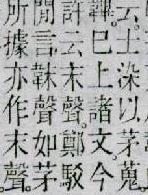 云。士染以茅蒐
韠。巳上諸文。今
許云末聲。鄭駁
閒言韎聲如茅
所據亦作末聲。